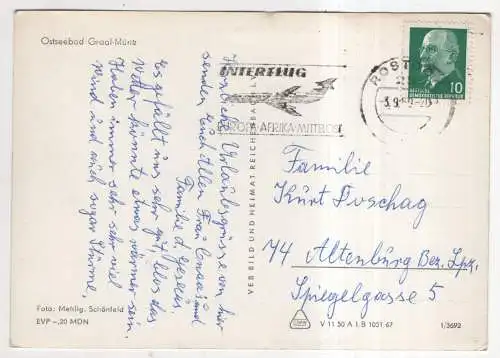 Ostseebad Graal-Müritz
Herzliche Urlaubsgrüsse von hier
senden Euch Allen Frau und
Familie
Es gefällt uns sehr gut, blos das
Wetter könnte etwas wärmer sein.
Haben immer sehr sehr viel
Wind und auch sogar Stürme.
Foto: Mehlig, Schönfeld
EVP –,20 MDN
VERBILD UND HEIMAT REICHENBACH
INTERFLUG
EUROPA-AFRIKA-MITTELOST
ROST
DEUTSCHE
DEMOKRATISCHE REPUBLIK
10
Familie
Kurt Poschag
74 Altenburg Bez. Lpz.
Spiegelgasse 5
V 11 50 A 1.B 1051 67
1/3692